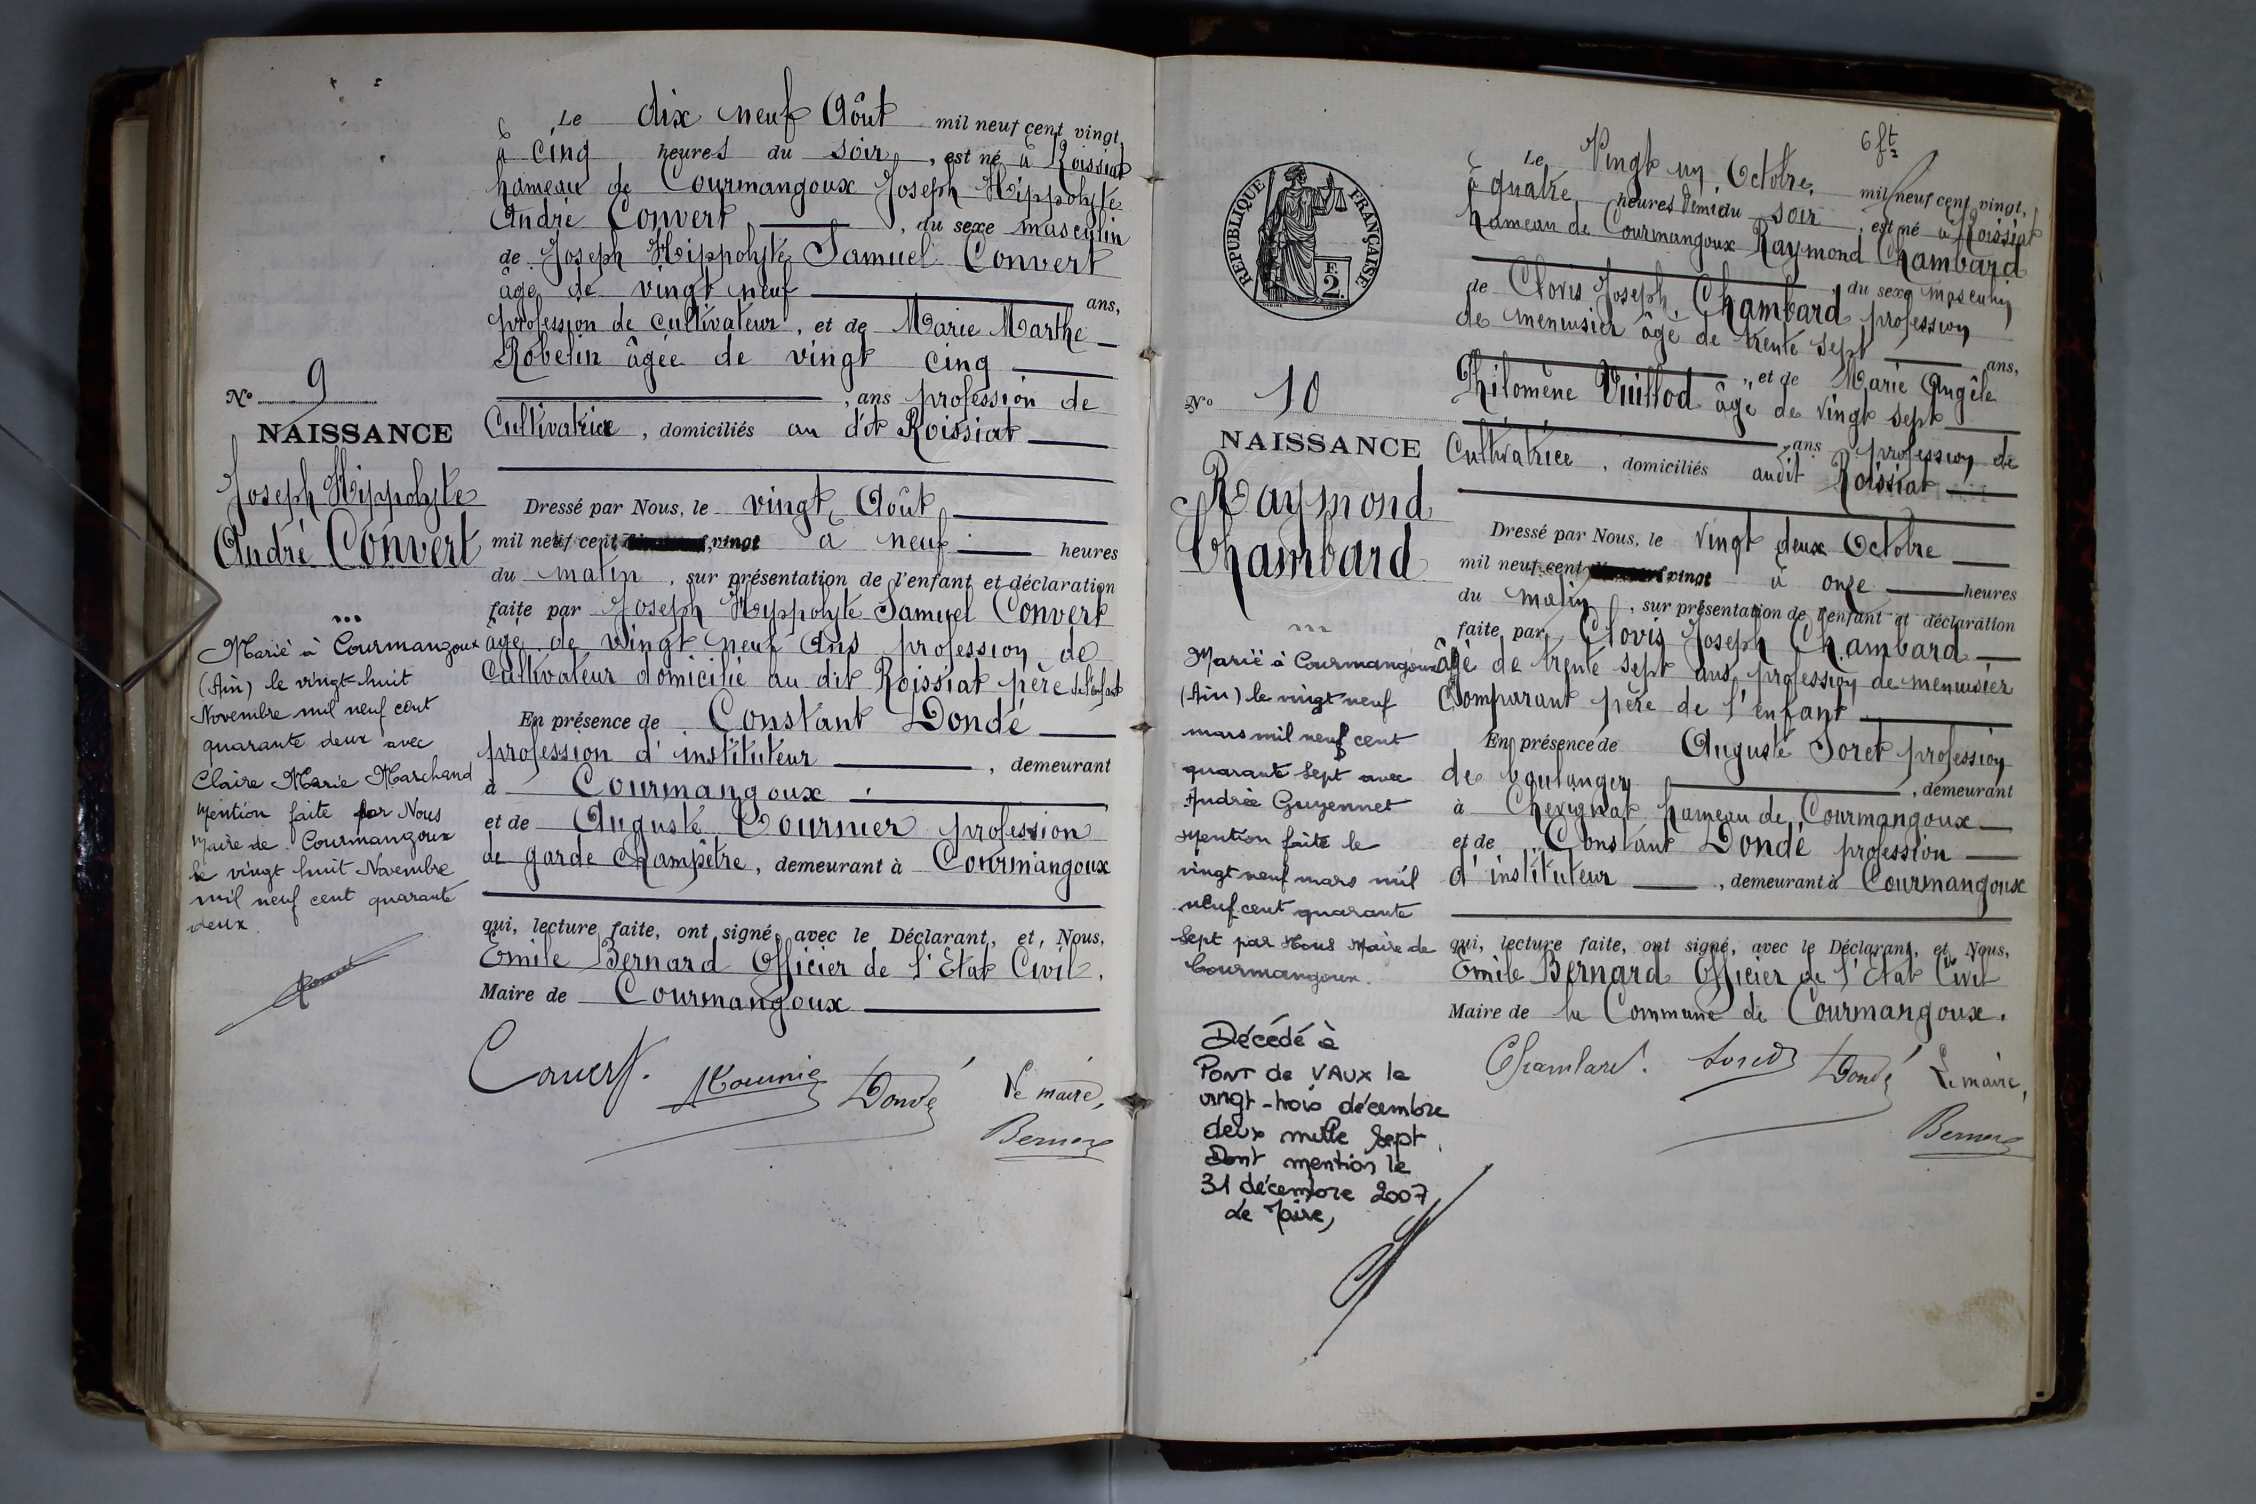 Le dix neuf Août mil neuf cent vingt,
à cinq heures du soir, est né à Roissiat
hameau de Courmangoux Joseph Hippolyte
André Convert, du sexe masculin
de Joseph Hippolyte Samuel Convert
âgé de vingt neuf ans,
profession de cultivateur, et de Marie Marthe
Robelin âgée de vingt cinq
, ans profession de
Cultivatrice, domiciliés au dit Roissiat
Nº 9
NAISSANCE
Joseph Hippolyte
André Convert
Dressé par Nous, le vingt Août
mil neuf cent vingt à neuf heures
du matin, sur présentation de l'enfant et déclaration
faite par Joseph Hippolyte Samuel Convert
âgé de vingt neuf ans profession de
Cultivateur domicilié au dit Roissiat père de l'enfant
En présence de Constant Dondé
profession d'instituteur, demeurant
à Courmangoux
et de Auguste Cournier profession
de garde champêtre, demeurant à Courmangoux
qui, lecture faite, ont signé avec le Déclarant, et, Nous,
Emile Bernard Officier de l'Etat Civil,
Maire de Courmangoux
Convert.
Dondé
Le maire,
Bernard
Marié à Courmangoux
(Ain) le vingt huit
Novembre mil neuf cent
quarante deux avec
Claire Marie Marchand
Mention faite par Nous
Maire de Courmangoux
le vingt huit Novembre
mil neuf cent quarante
deux.
6 ft
RÉPUBLIQUE FRANÇAISE
F.
2.
Le Vingt un Octobre mil neuf cent vingt,
à quatre heures demi du soir, est né à Roissiat
hameau de Courmangoux Raymond Chambard
, du sexe masculin
de Clovis Joseph Chambard profession
de menuisier âgé de trente sept ans,
, et de Marie Angèle
Philomène Vuillod âgé de vingt sept
, ans profession de
Cultivatrice, domiciliés audit Roissiat
Nº 10
NAISSANCE
Raymond
Chambard
Dressé par Nous, le vingt deux Octobre
mil neuf cent vingt à onze heures
du matin, sur présentation de l'enfant et déclaration
faite par Clovis Joseph Chambard
âgé de trente sept ans profession de menuisier
Comparant père de l'enfant
En présence de Auguste Soret profession
de boulanger, demeurant
à Chevignat hameau de Courmangoux
et de Constant Dondé profession
d'instituteur, demeurant à Courmangoux
qui, lecture faite, ont signé, avec le Déclarant, et Nous,
Emile Bernard Officier de l'Etat Civil
Maire de la Commune de Courmangoux.
Chambard.
Soret
Dondé
Le maire,
Bernard
Marié à Courmangoux
(Ain) le vingt neuf
mars mil neuf cent
quarante sept avec
Andrée Guyennet
Mention faite le
vingt neuf mars mil
neuf cent quarante
sept par Nous Maire de
Courmangoux.
Décédé à
PONT de VAUX le
vingt-trois décembre
deux mille sept.
Dont mention le
31 décembre 2007
Le Maire,